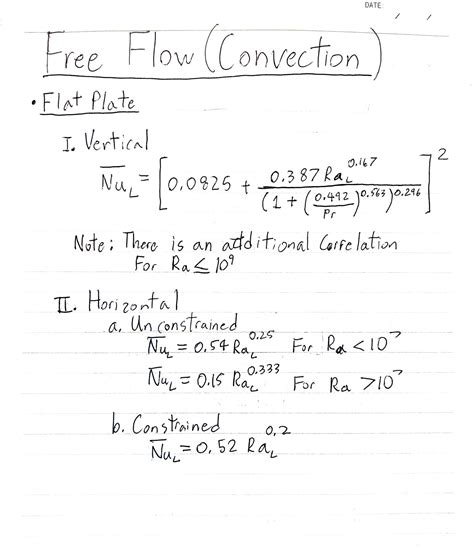 DATE
/ /
Free Flow (Convection)
• Flat Plate
I. Vertical
N̅u̅_L = [0.0825 + 0.387 Ra_L^0.167 / (1 + (0.492/Pr)^0.563)^0.296]^2
Note: There is an additional Correlation
For Ra ≤ 10^9
II. Horizontal
a. Unconstrained
N̅u̅_L = 0.54 Ra_L^0.25 For Ra < 10^7
N̅u̅_L = 0.15 Ra_L^0.333 For Ra > 10^7
b. Constrained
N̅u̅_L = 0.52 Ra_L^0.2